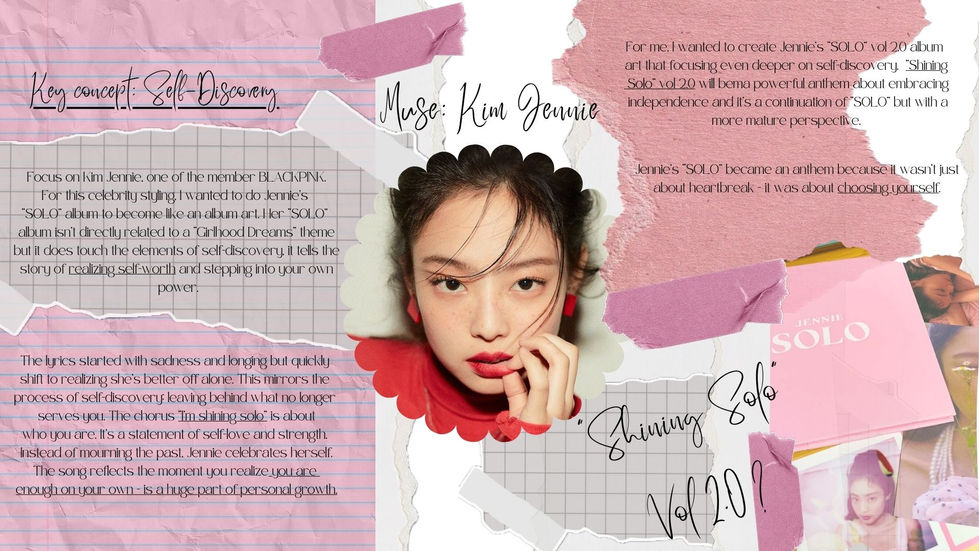 Key concept: Self-Discovery.
Focus on Kim Jennie, one of the member BLACKPINK.
For this celebrity styling, I wanted to do Jennie's
"SOLO" album to become like an album art. Her "SOLO"
album isn't directly related to a "Girlhood Dreams" theme
but it does touch the elements of self-discovery, it tells the
story of realizing self-worth and stepping into your own
power.
The lyrics started with sadness and longing but quickly
shift to realizing she's better off alone. This mirrors the
process of self-discovery: leaving behind what no longer
serves you. The chorus "I'm shining solo" is about
who you are. It's a statement of self-love and strength.
Instead of mourning the past, Jennie celebrates herself.
The song reflects the moment you realize you are
enough on your own - is a huge part of personal growth.
Muse: Kim Jennie
For me, I wanted to create Jennie's "SOLO" vol 2.0 album
art that focusing even deeper on self-discovery. "Shining
Solo" vol 2.0 will bema powerful anthem about embracing
independence and it's a continuation of "SOLO" but with a
more mature perspective.
Jennie's "SOLO" became an anthem because it wasn't just
about heartbreak - it was about choosing yourself.
JENNIE
SOLO
"Shining Solo"
Vol 2.0 ?